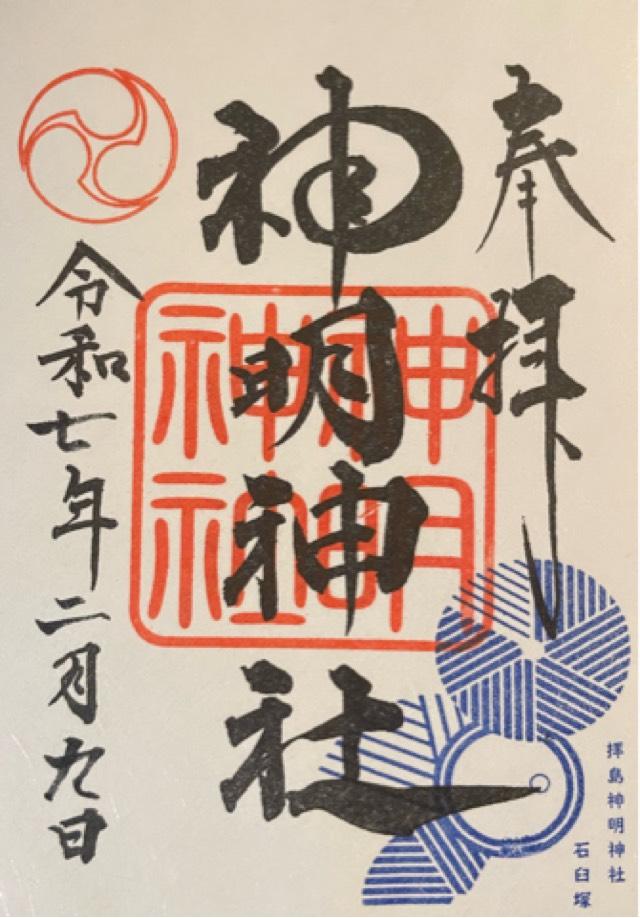 奉拝
神明神社
神明神社
令和七年二月九日
拝島神明神社
石臼塚